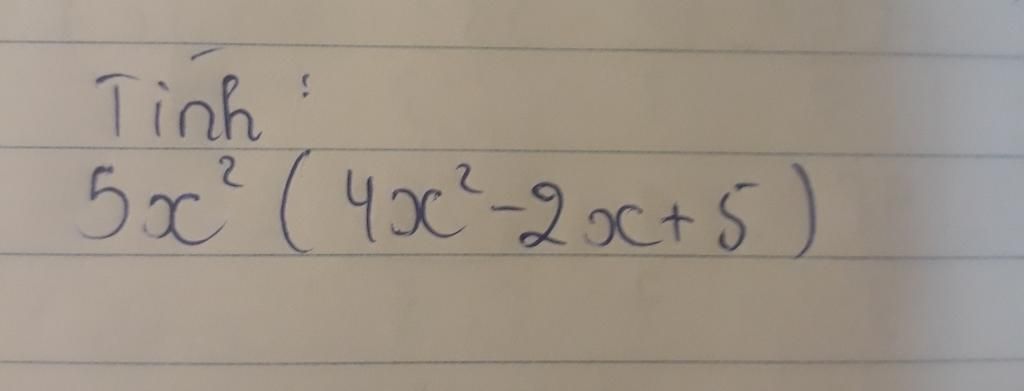 Tính :
5x² ( 4x² - 2x + 5 )